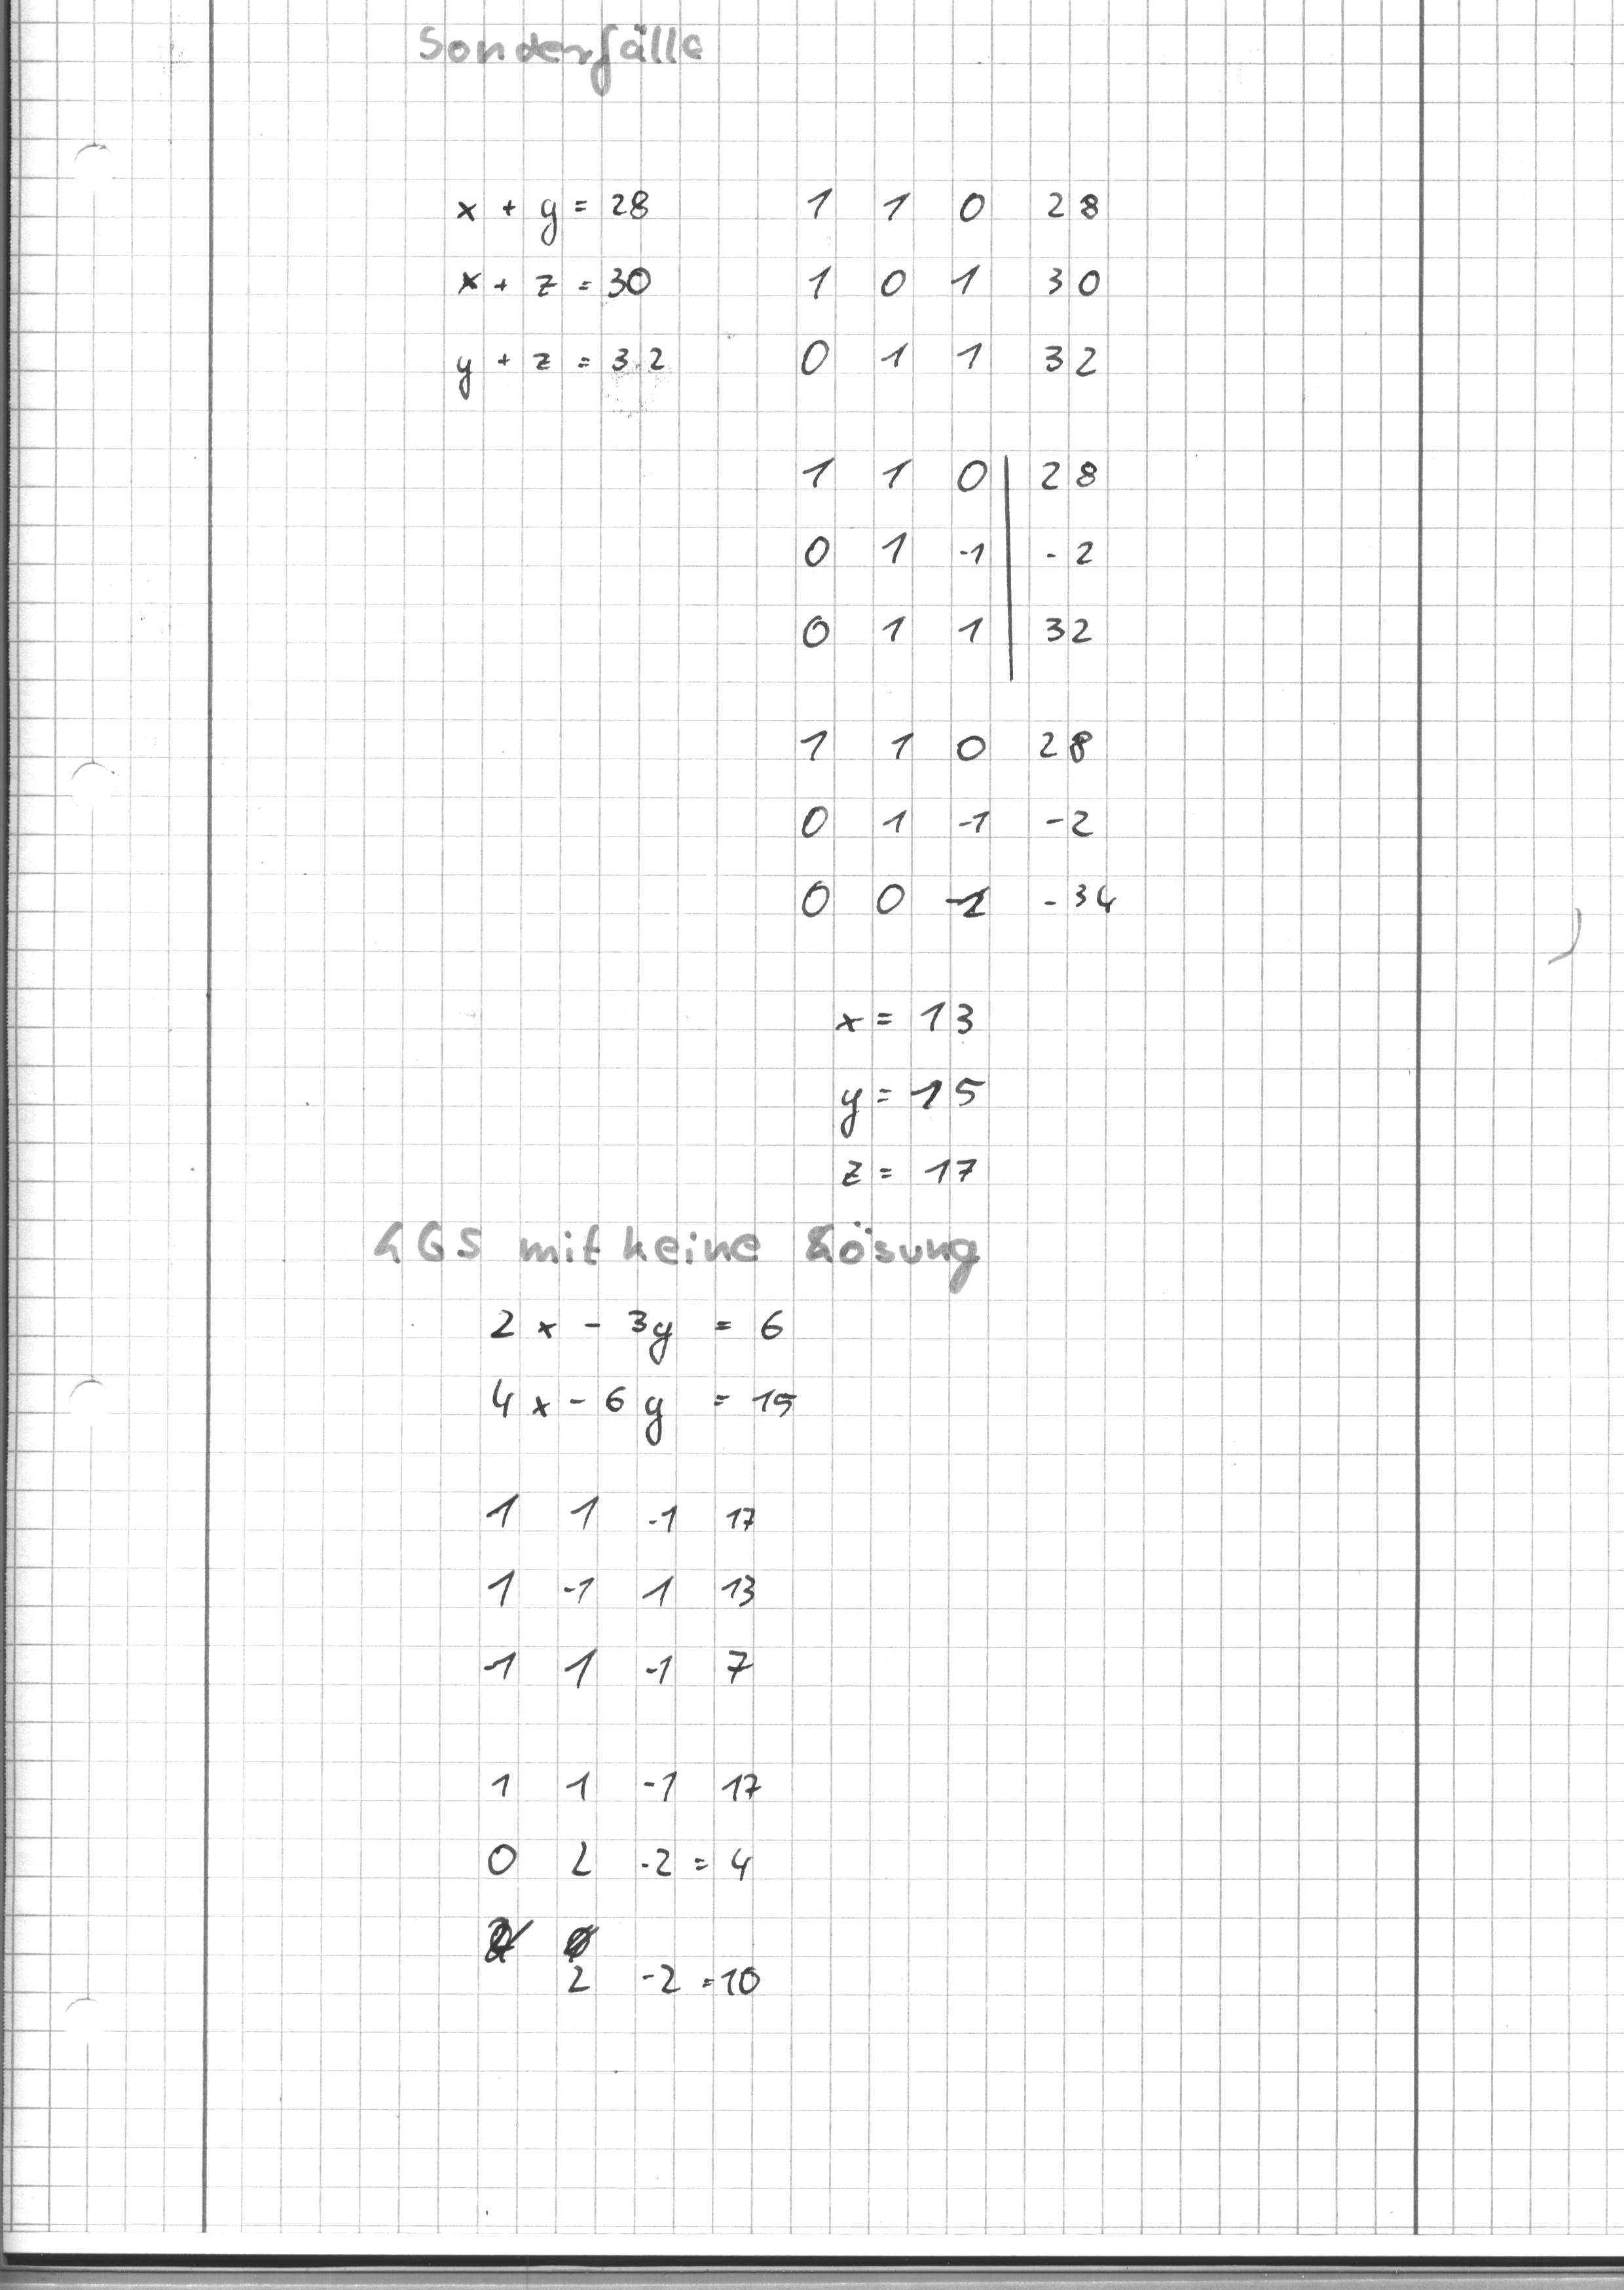 Sonderfälle
x + y = 28 1 1 0 28
x + z = 30 1 0 1 30
y + z = 32 0 1 1 32
1 1 0 | 28
0 1 -1 | -2
0 1 1 | 32
1 1 0 28
0 1 -1 -2
0 0 -2 -34
x = 13
y = 15
z = 17
LGS mit keine Lösung
2x - 3y = 6
4x - 6y = 15
1 1 -1 17
1 -1 1 13
-1 1 -1 7
1 1 -1 17
0 2 -2 = 4
2 -2 = 10